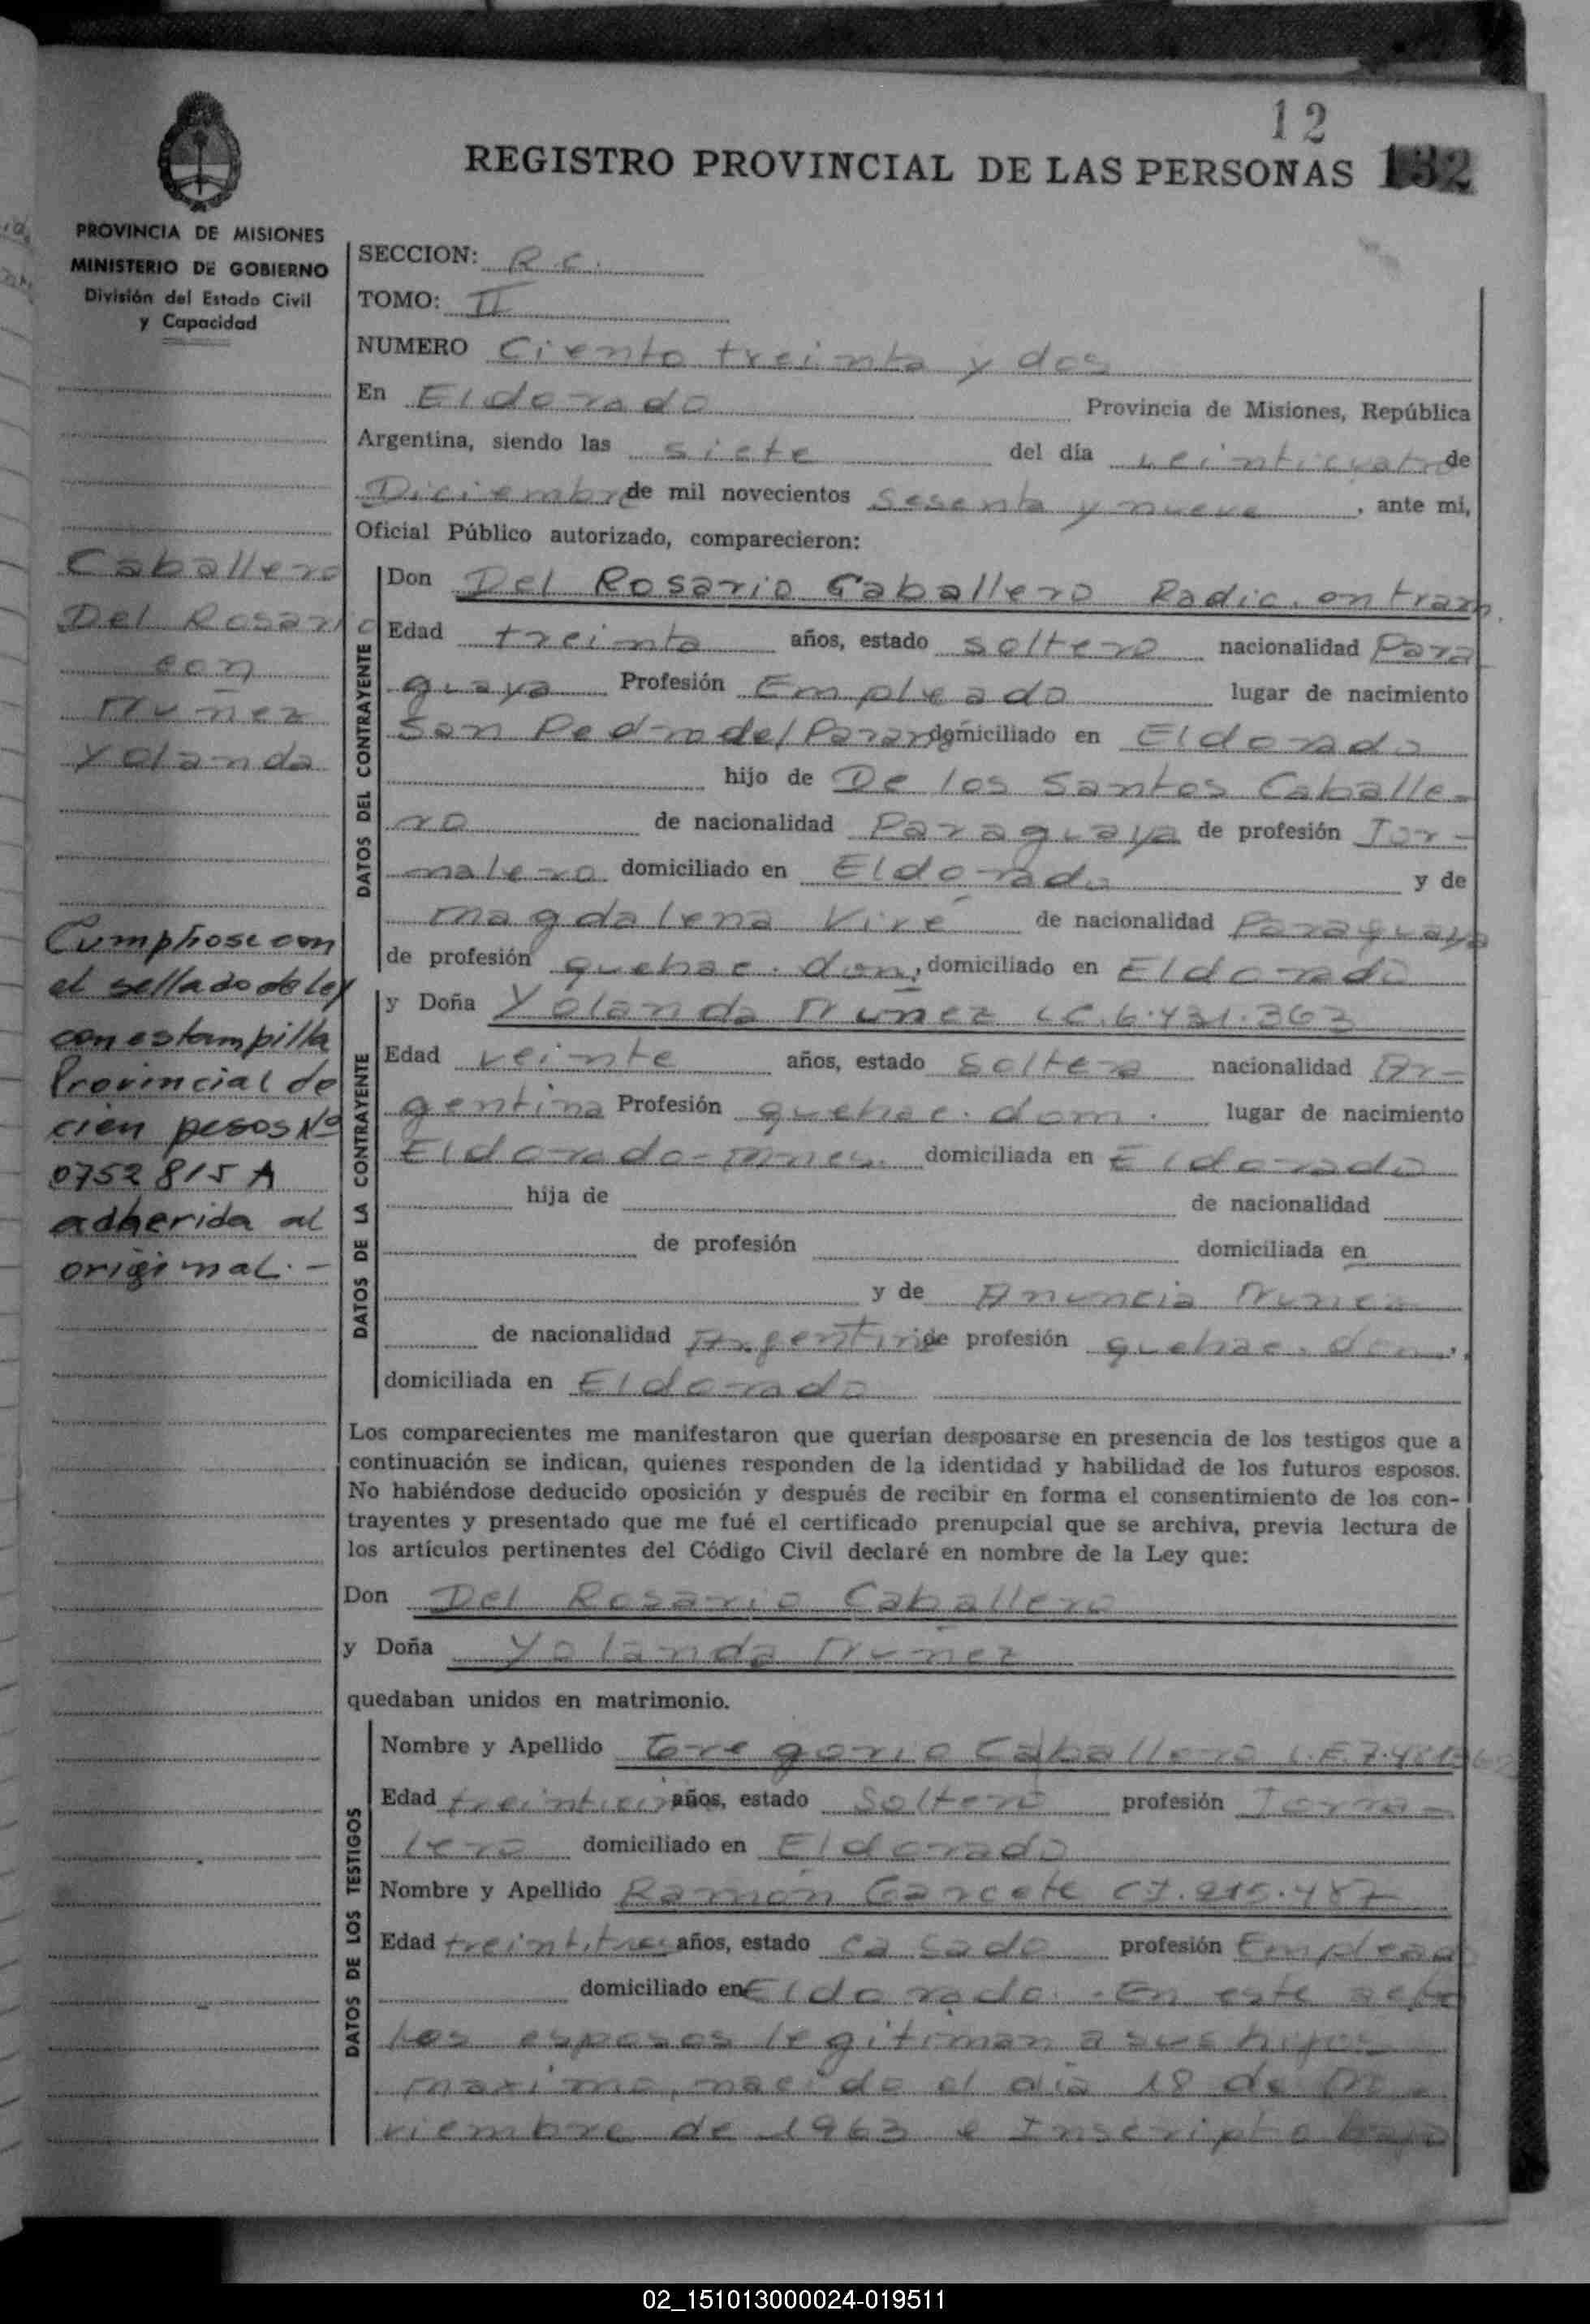 12
REGISTRO PROVINCIAL DE LAS PERSONAS 132
PROVINCIA DE MISIONES
MINISTERIO DE GOBIERNO
División del Estado Civil
y Capacidad
SECCION: R.C.
TOMO: II
NUMERO Ciento treinta y dos
En Eldorado Provincia de Misiones, República
Argentina, siendo las siete del día veinticuatro de
Diciembre de mil novecientos Sesenta y nueve, ante mi,
Oficial Público autorizado, comparecieron:
Caballero
Del Rosario
con
Nuñez
Yolanda
Cumpliose con
el sellado de ley
con estampilla
Provincial de
cien pesos Nº
0752815 A
adherida al
original.-
DATOS DEL CONTRAYENTE
Don Del Rosario Caballero Radic. en tram.
Edad treinta años, estado soltero nacionalidad Para
guaya Profesión Empleado lugar de nacimiento
San Pedro del Parana domiciliado en Eldorado
hijo de De los Santos Caballe-
ro de nacionalidad Paraguaya de profesión Jor-
nalero domiciliado en Eldorado y de
Magdalena Viré de nacionalidad Paraguaya
de profesión quehac. dom., domiciliado en Eldorado
DATOS DE LA CONTRAYENTE
y Doña Yolanda Nuñez LC. 6.431.363
Edad veinte años, estado soltera nacionalidad Ar-
gentina Profesión quehac. dom. lugar de nacimiento
Eldorado-Mnes. domiciliada en Eldorado
hija de de nacionalidad
de profesión domiciliada en
y de Anuncia Nunez
de nacionalidad Argentina de profesión quehac. dom.,
domiciliada en Eldorado
Los comparecientes me manifestaron que querían desposarse en presencia de los testigos que a
continuación se indican, quienes responden de la identidad y habilidad de los futuros esposos.
No habiéndose deducido oposición y después de recibir en forma el consentimiento de los con-
trayentes y presentado que me fué el certificado prenupcial que se archiva, previa lectura de
los artículos pertinentes del Código Civil declaré en nombre de la Ley que:
Don Del Rosario Caballero
y Doña Yolanda Nuñez
quedaban unidos en matrimonio.
DATOS DE LOS TESTIGOS
Nombre y Apellido Gregorio Caballero L.E.
Edad años, estado Soltero profesión Jorna-
lero domiciliado en Eldorado
Nombre y Apellido Ramón Garcete CI. 215.487
Edad treintitres años, estado casado profesión Empleado
domiciliado en Eldorado. - En este acto
los esposos legitiman a sus hijos
Maximo, nacido el dia 18 de No-
viembre de 1963 e Inscripto bajo
02_151013000024-019511